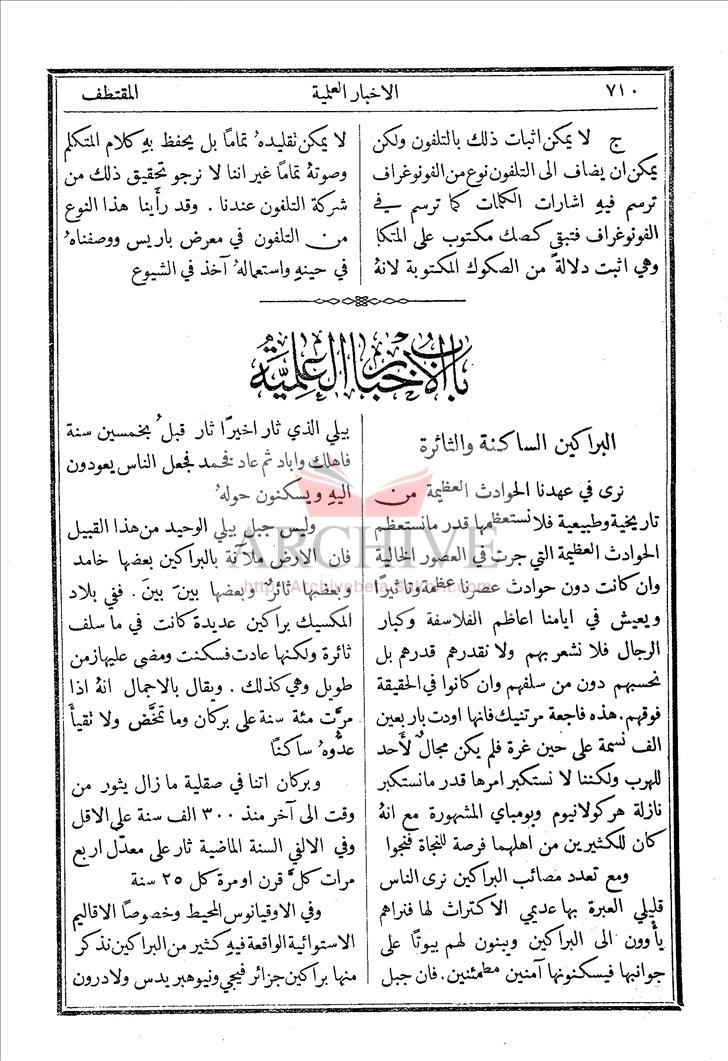 ٧١٠
الاخبار العلمية
المقتطف
ج لا يمكن اثبات ذلك بالتلفون ولكن
يمكن ان يضاف الى التلفون نوع من الفونوغراف
ترسم فيهِ اشارات الكلمات كما ترسم في
الفونوغراف فتبقى كصك مكتوب على المتكلم
وهي اثبت دلالةً من الصكوك المكتوبة لانهُ
لا يمكن تقليدهُ تماماً بل يحفظ بهِ كلام المتكلم
وصوتهُ تماماً غير اننا لا نرجو تحقيق ذلك من
شركة التلفون عندنا . وقد رأينا هذا النوع
من التلفون في معرض باريس ووصفناهُ
في حينهِ واستعمالهُ آخذ في الشيوع
باب الاخبار العلمية
البراكين الساكنة والثائرة
نرى في عهدنا الحوادث العظيمة من
تاريخية وطبيعية فلا نستعظمها قدر ما نستعظم
الحوادث العظيمة التي جرت في العصور الخالية
وان كانت دون حوادث عصرنا عظمة وتاثيراً
ويعيش في ايامنا اعاظم الفلاسفة وكبار
الرجال فلا نشعر بهم ولا نقدرهم قدرهم بل
نحسبهم دون من سلفهم وان كانوا في الحقيقة
فوقهم. هذه فاجعة مرتنيك فانها اودت باربعين
الف نسمة على حين غرة فلم يكن مجالٌ لأحد
للهرب ولكننا لا نستكبر امرها قدر ما نستكبر
نازلة هركولانيوم وبومباي المشهورة مع انهُ
كان للكثيرين من اهلهما فرصة للنجاة فنجوا
ومع تعدد مصائب البراكين نرى الناس
قليلي العبرة بها عديمي الاكتراث لها فنراهم
يأوون الى البراكين ويبنون لهم بيوتاً على
جوانبها فيسكنونها آمنين مطمئنين. فان جبل
بيلي الذي ثار اخيراً ثار قبلُ بخمسين سنة
فاهلك واباد ثم عاد فخمد فجعل الناس يعودون
اليهِ ويسكنون حولهُ
وليس جبل بيلي الوحيد من هذا القبيل
فان الارض ملآنة بالبراكين بعضها خامد
وبعضها ثائرٌ وبعضها بينَ بينَ. ففي بلاد
المكسيك براكين عديدة كانت في ما سلف
ثائرة ولكنها عادت فسكنت ومضى عليها زمن
طويل وهي كذلك . ويقال بالاجمال انهُ اذا
مرَّت مئة سنة على بركان وما تمخَّض ولا تقيأ
عدُّوهُ ساكناً
وبركان اتنا في صقلية ما زال يثور من
وقت الى آخر منذ ٣٠٠ الف سنة على الاقل
وفي الالفي السنة الماضية ثار على معدَّل اربع
مرات كلَّ قرن او مرة كل ٢٥ سنة
وفي الاوقيانوس المحيط وخصوصاً الاقاليم
الاستوائية الواقعة فيهِ كثير من البراكين نذكر
منها براكين جزائر فيجي ونيوهبريدس ولادرون
ARCHIVE
http://Archivebeta.Sakhrit.com